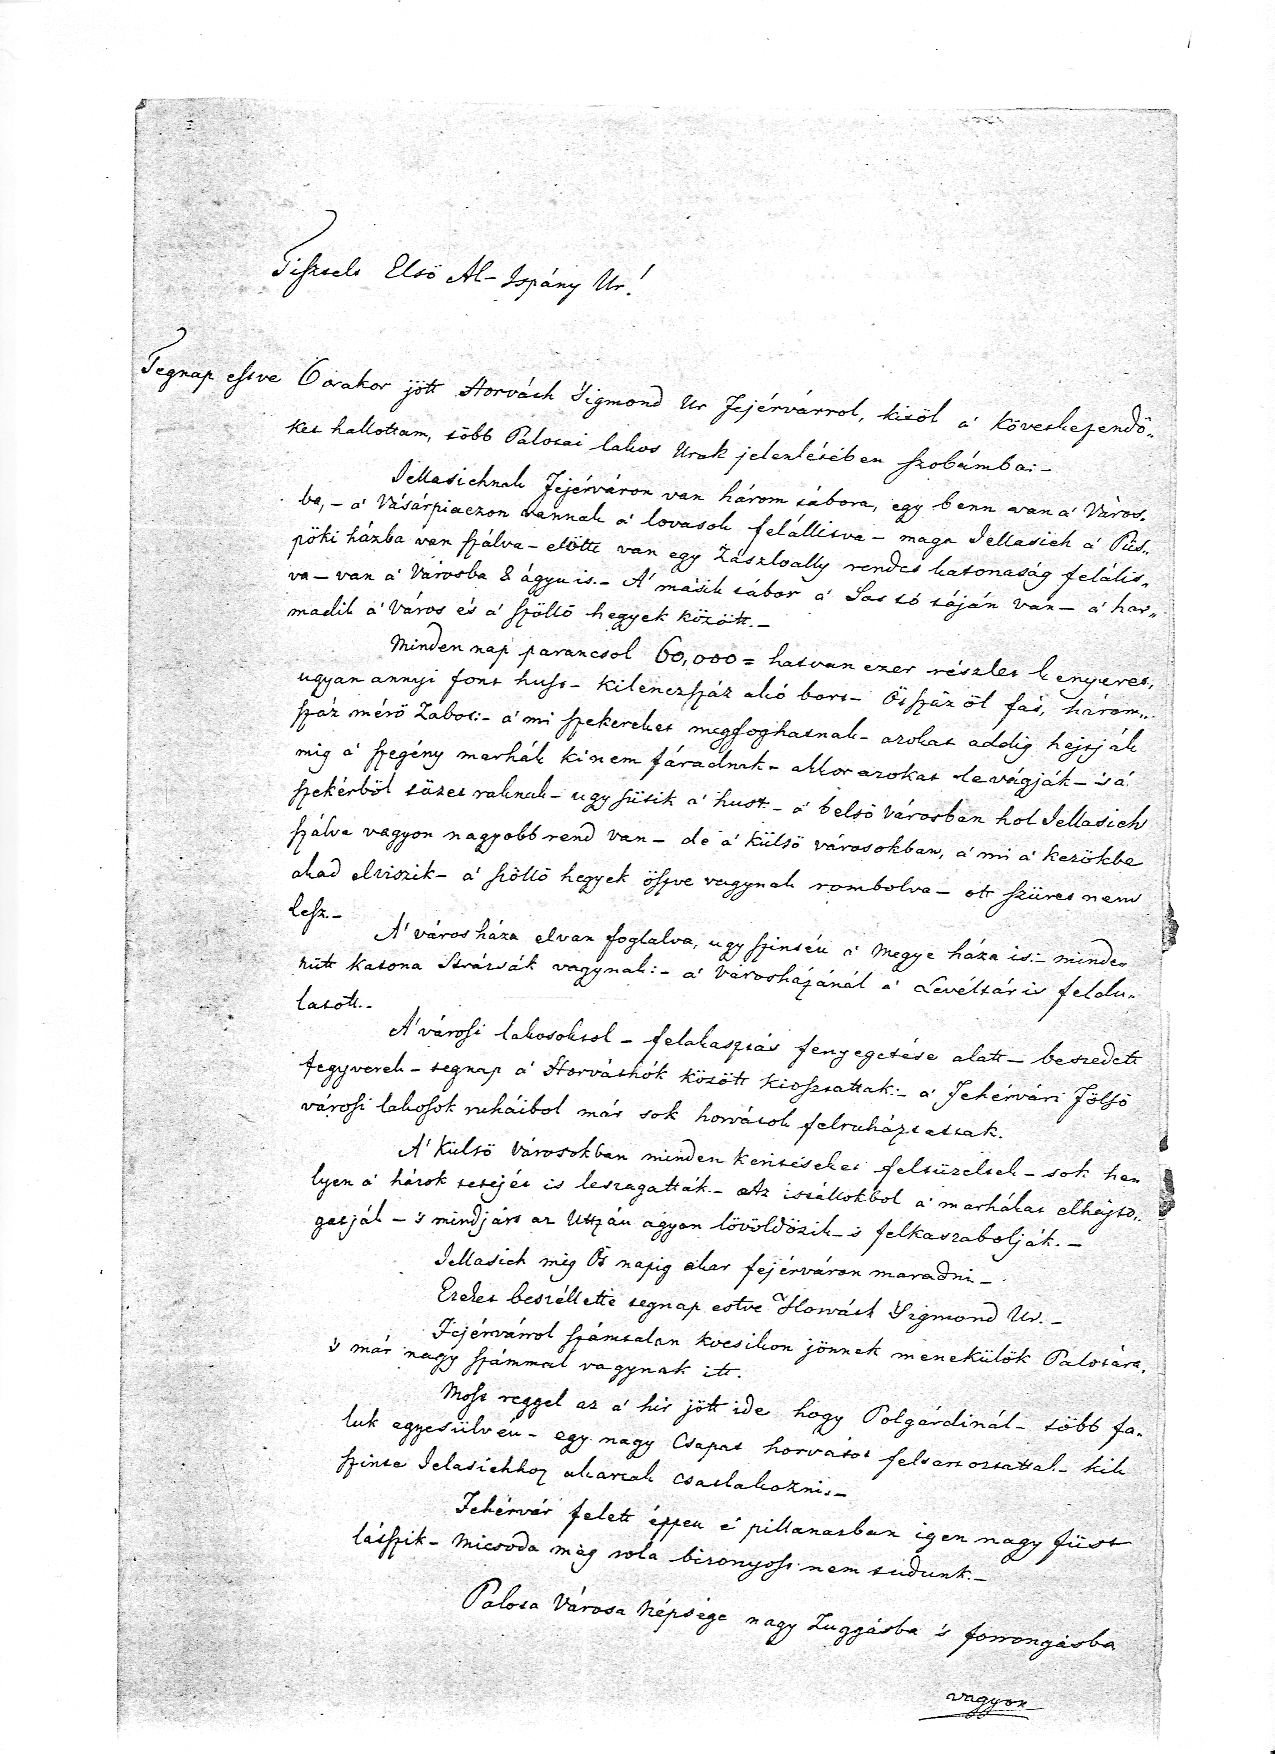 Tisztelt Első Al-Ispány Ur!
Tegnap estve 6 orakor jött Horváth Sigmond Ur Fejérvárrol, kitöl a' következendö„
ket hallottam, több Palotai lakos Urak jelenlétében szobámba:-
Jellasichnak Fejérváron van három tábora, egy benn van a' Város„
ba,- a' Vásárpiaczon vannak a' lovasok felállitva- maga Jellasich a' Püs„
pöki házba van szálva- elötte van egy Zászloally rendes katonaság felálit„
va- van a' Városba 8 ágyu is.- A' másik tábor a' Sos tó táján van- a' har„
madik a' Város és a' szöllö hegyek között.-
Minden nap parancsol 60,000 = hatvan ezer részlet kenyeret,
ugyan annyi font hust- kilenczszáz akó bort- Ötszáz öl fát, három„
száz mérö Zabot:- a' mi szekereket megfoghatnak- azokat addig hajtják
mig a' szegény marhák ki nem fáradnak- akkor azokat levágják- 's a'
szekérböl tüzet raknak- ugy sütik a' hust- a' belsö Városban hol Jellasich
szálva vagyon nagyobb rend van- de a' külsö városokban, a' mi a' kezökbe
akad elviszik- a' szöllö hegyek öszve vagynak rombolva- ott szüret nem
lesz.-
A' város háza elvan foglalva, ugy szintén a' Megye háza is:- minde„
nütt katona Strázsák vagynak:- a' Városházánál a' Levéltár is feldu„
latott.-
A' városi lakosoktol- felakasztás fenyegetése alatt- beszedett
fegyverek- tegnap a' Horváthók között kiosztattak:- a' Fehérvári Fölsö
városi lakosok ruháibol már sok horvátok felruháztattak.
A' Külsö Városokban minden keritéseket feltüzeltek- sok he„
lyen a' házok tetejét is leszagatták.- Az istállokbol a' marhákat elhajto„
gatják- 's mindjárt az Utzán agyon lövöldözik- 's felkaszabolják.-
Jellasich még Öt napig akar fejérváron maradni-
Ezeket beszéllette tegnap estve Horváth Sigmond Ur.-
Fejérvárrol számtalan kocsikon jönnek menekülök Palotára,
's már nagy számmal vagynak itt.
Most reggel az a' hir jött ide hogy Polgárdinál- több fa„
luk egyesülvén- egy nagy Csapat horvátot feltartoztattak- kik
szinte Jelasichhoz akartak csatlakozni.-
Fehérvár felett éppen e' pillanatban igen nagy füst
látszik- micsoda még rola bizonyost nem tudunk.-
Palota Városa Népsége nagy Zuggásba 's forrongásba
vagyon